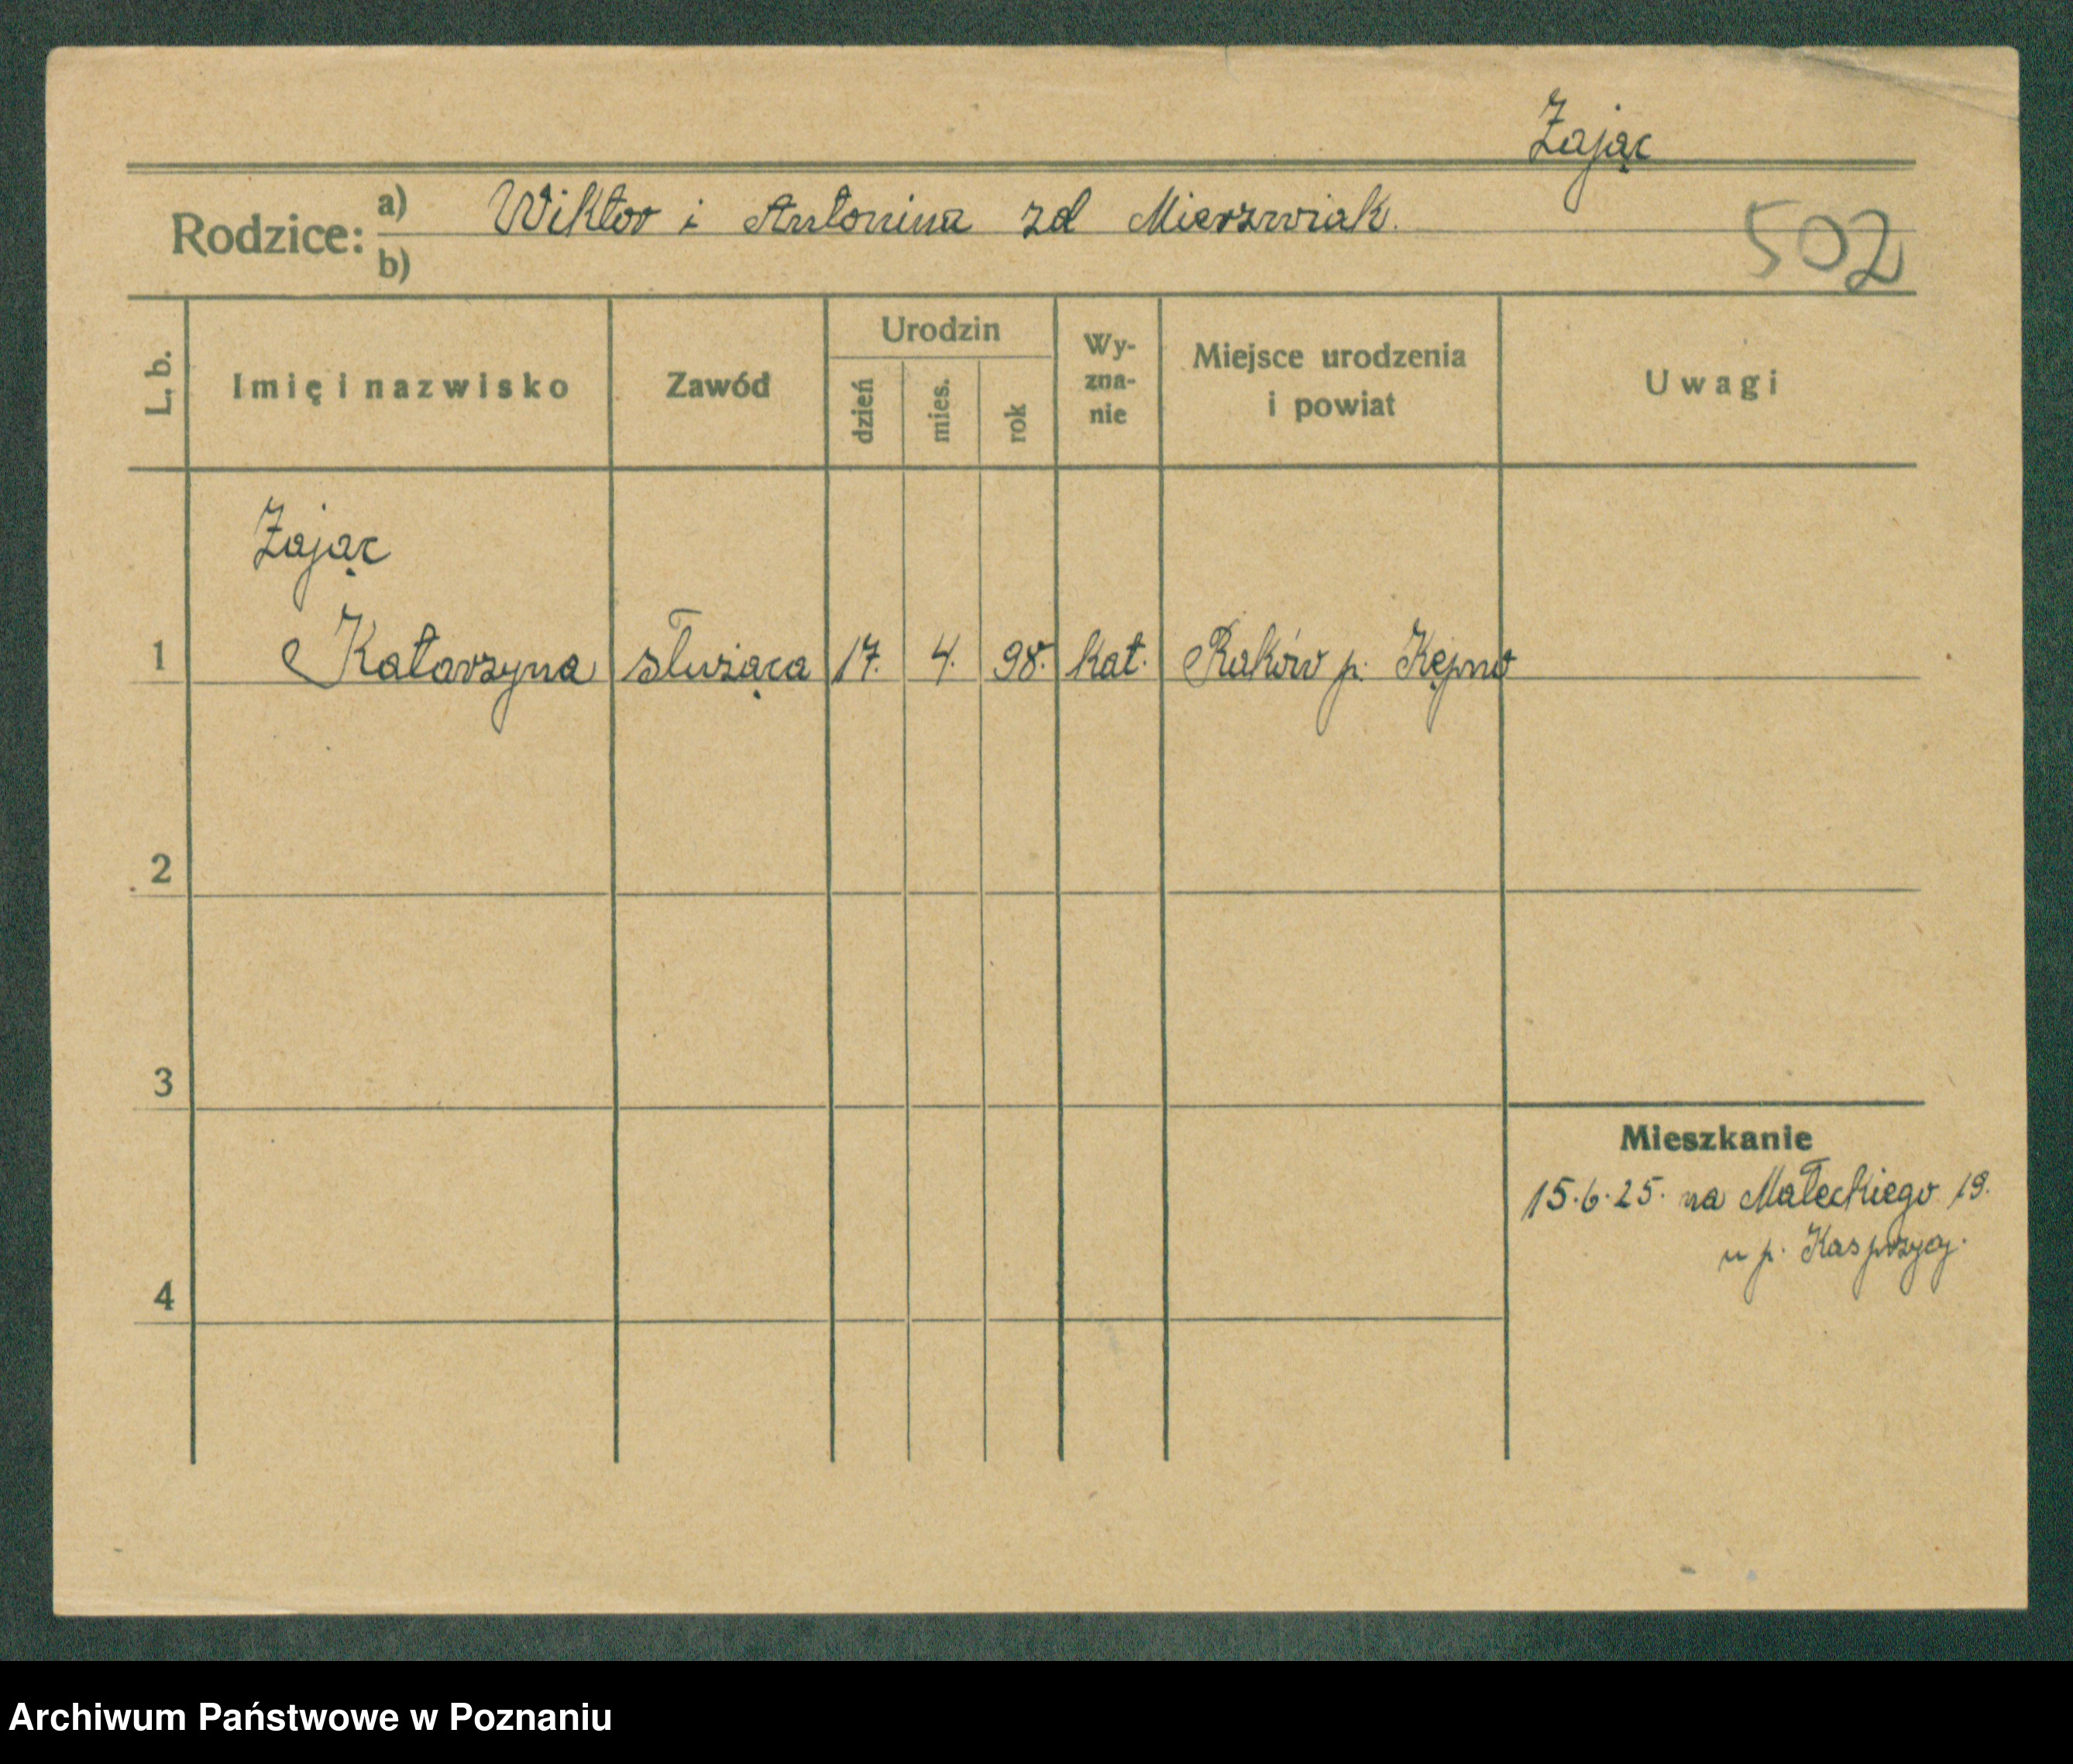 Zając
Rodzice: a) Wiktor i Antonina zd Mierzwiak.
b)
502
L. b. Imię i nazwisko Zawód Urodzin dzień mies. rok Wy-zna-nie Miejsce urodzenia i powiat Uwagi
Zając
1 Katarzyna służąca 17. 4. 98. kat. Raków p. Kępno
2
3
Mieszkanie
15.6.25. na Małeckiego 19.
u p. Kasprzycy.
4
Archiwum Państwowe w Poznaniu